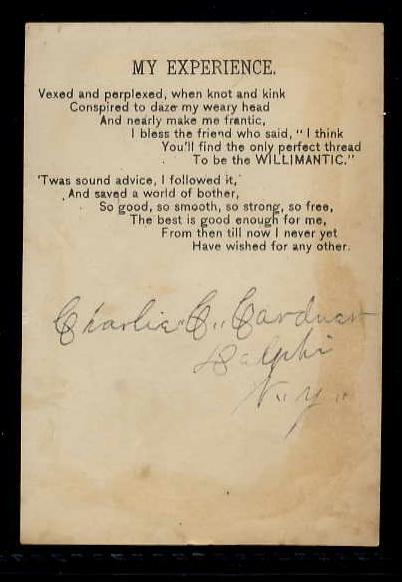 MY EXPERIENCE.
Vexed and perplexed, when knot and kink
Conspired to daze my weary head
And nearly make me frantic,
I bless the friend who said, "I think
You'll find the only perfect thread
To be the WILLIMANTIC."
'Twas sound advice, I followed it,
And saved a world of bother,
So good, so smooth, so strong, so free,
The best is good enough for me,
From then till now I never yet
Have wished for any other.
Charlie C. Cardner
Delphi
N.y.